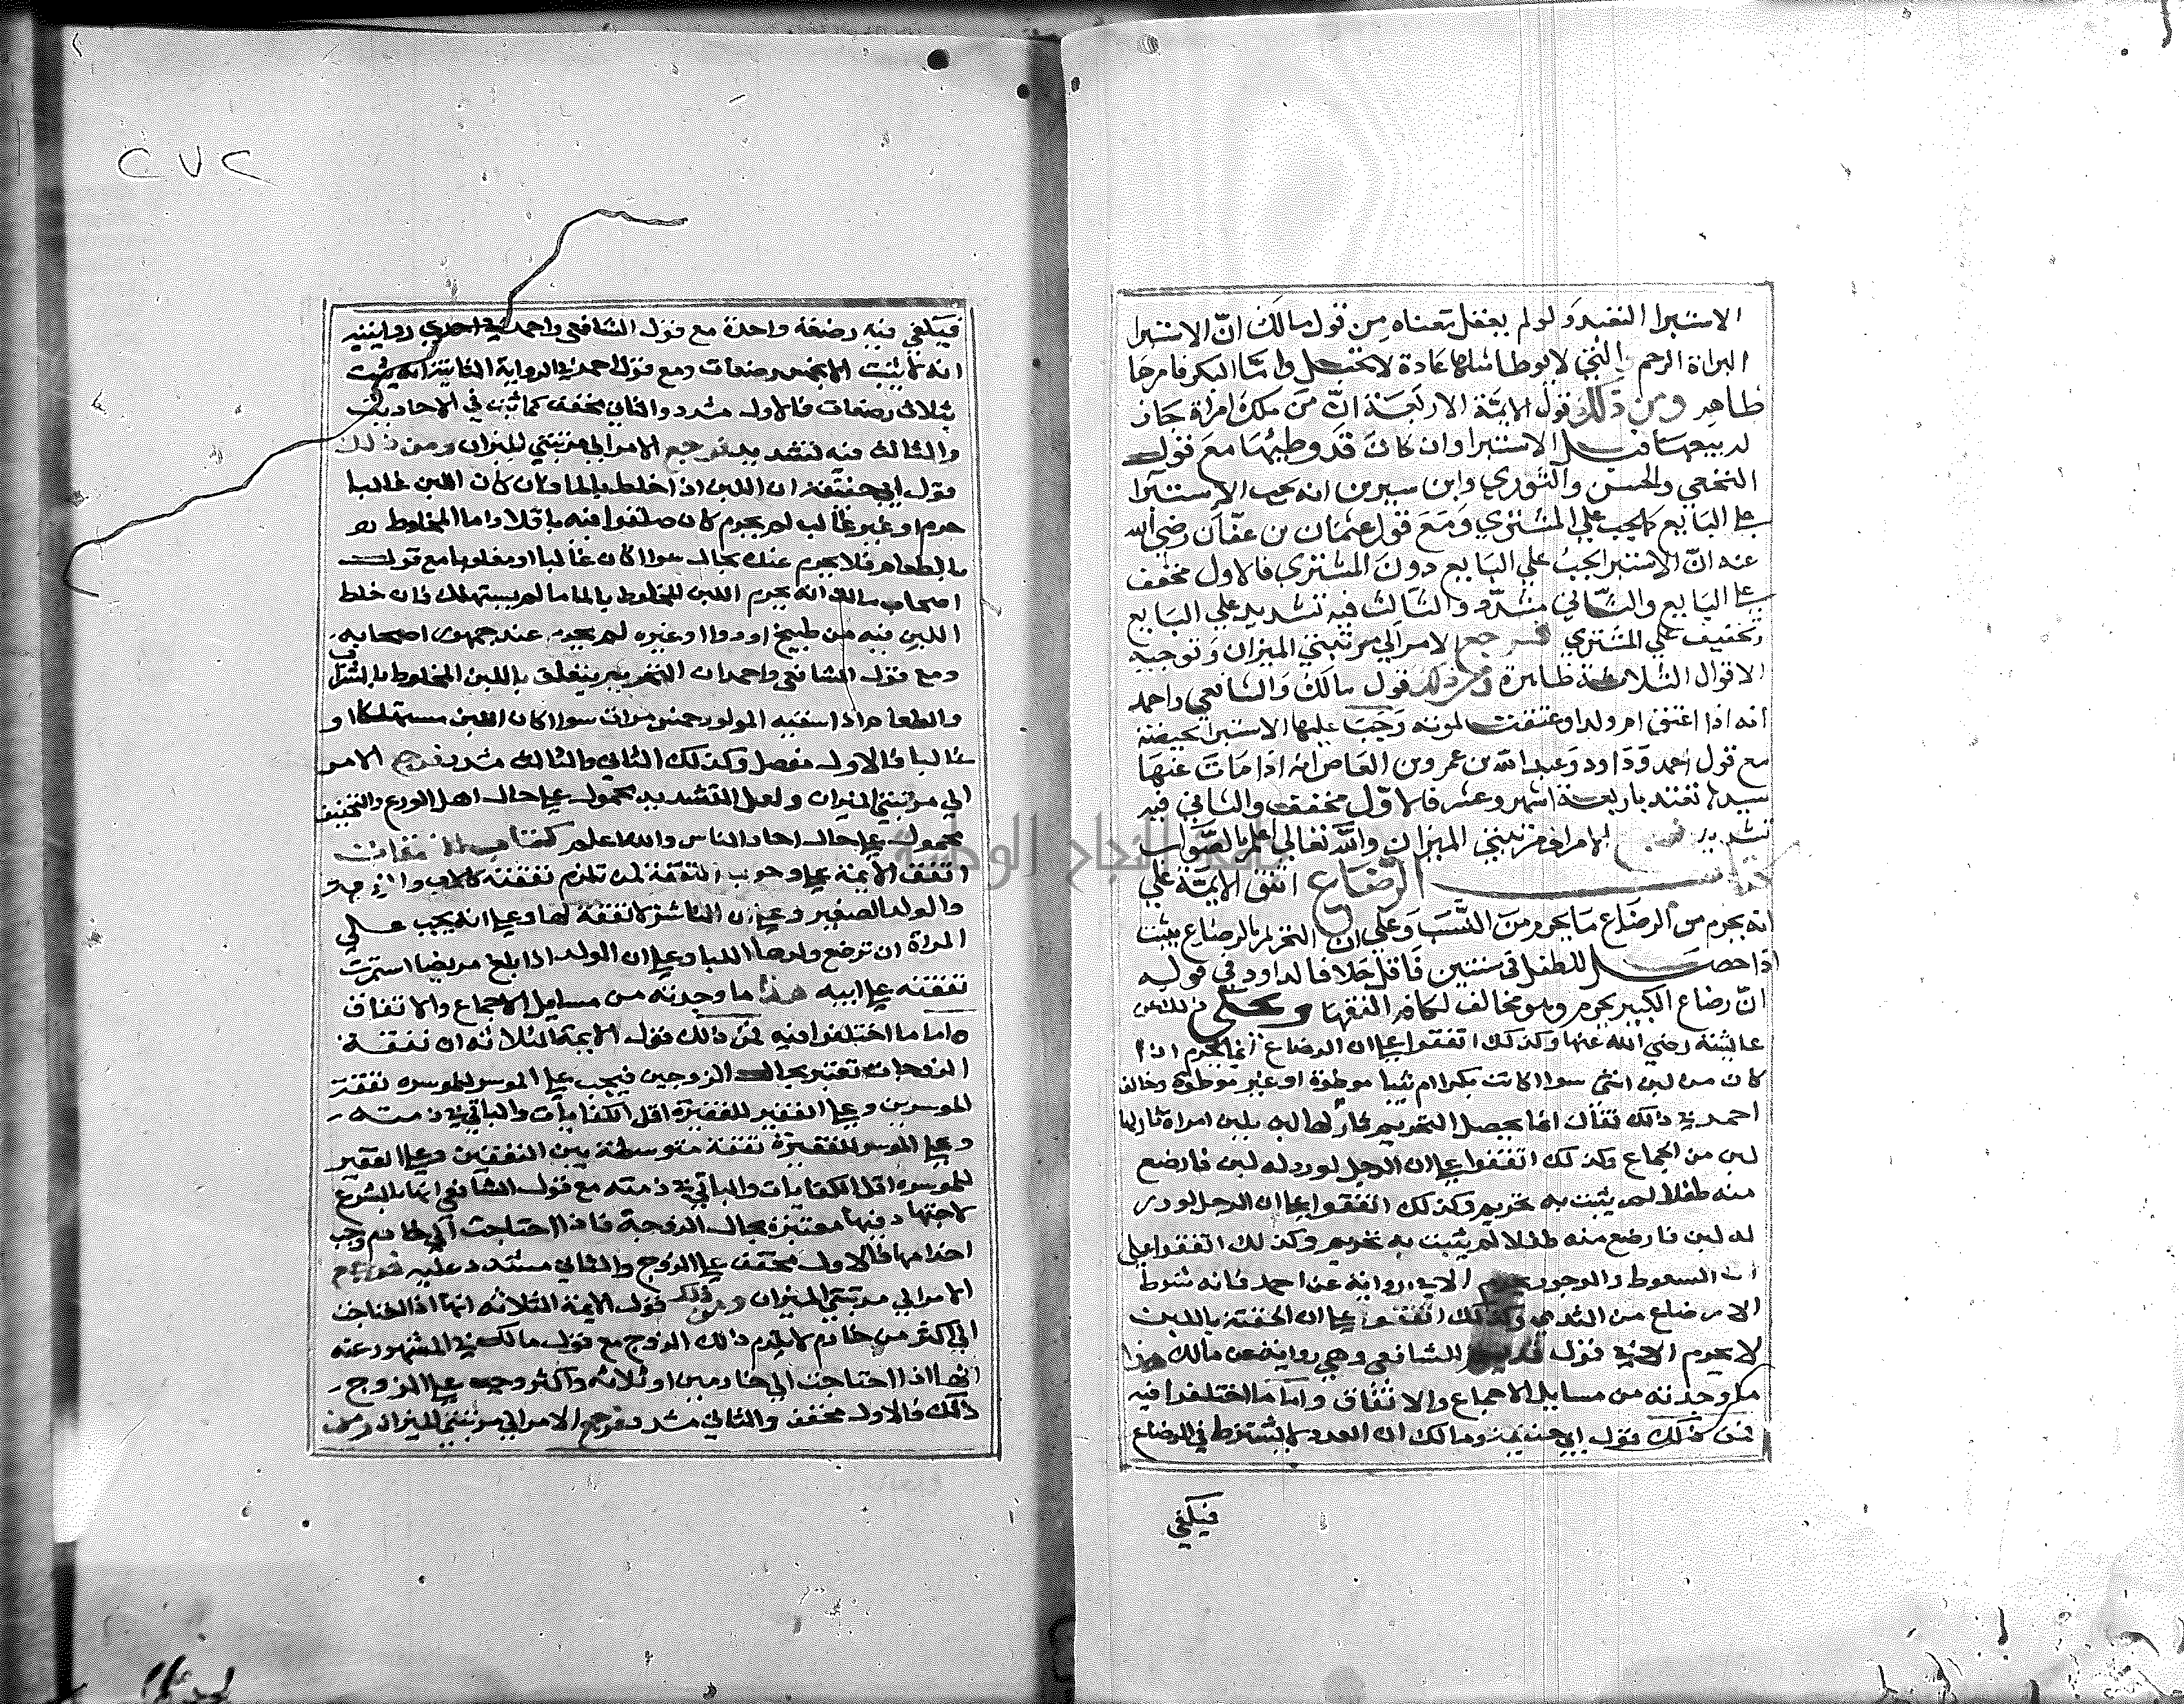 الاستبرا التعبد ولو لم يعقل معناه من قول مالك ان الاستبرا
البراة الرحم والتي لا يوطا مثلها عادة لا تحتمل واما البكر فامرها
ظاهر ومن ذلك قول الايمة الاربعة ان من ملك امراة جاز
له بيعها قبل الاستبرا وان كان قد وطيها مع قول
النخعي والحسن والثوري وابن سيرين انه يجب الاستبرا
على البايع كما يجب علي المشتري ومع قول عثمان بن عفان رضي الله
عنه ان الاستبرا يجب علي البايع دون المشتري فالاول مخفف
على البايع والثاني مشدد والثالث فيه تشديد علي البايع
وتخفيف علي المشتري فرجع الامر الي مرتبتي الميزان وتوجيه
الاقوال الثلاثة ظاهرة ومن ذلك قول مالك والشافعي واحمد
انه اذا اعتق ام ولد او عتقت لموته وجب عليها الاستبرا بحيضة
مع قول احمد وداود وعبد الله بن عمرو بن العاص انه اذا مات عنها
سيدها تعتد باربعة اشهر وعشر فالاول مخفف والثاني فيه
تشديد الامر الي مرتبتي الميزان والله تعالي اعلم بالصواب
كتاب الرضاع اتفق الايمة علي
انه يحرم من الرضاع ما يحرم من النسب وعلي ان التحريم بالرضاع يثبت
اذا حصل للطفل في سنتين فاقل خلافا لداود في قوله
ان رضاع الكبير يحرم وهو مخالف لكافة الفقها وحكي ذلك عن
عايشة رضي الله عنها وكذلك اتفقوا على ان الرضاع انما يحرم اذا
كان من لبن انثي سوا كانت بكرا ام ثيبا موطوة او غير موطوة وخالف
احمد في ذلك فقال انما يحصل التحريم بلبن امراة ثار لها
لبن من الجماع وكذلك اتفقوا على ان الرجل لو در له لبن فارضع
منه طفلا لم يثبت به تحريم وكذلك اتفقوا على ان الرجل لو در
له لبن فارضع منه طفلا لم يثبت به تحريم وكذلك اتفقوا علي
ان السعوط والوجور يحرم الا في رواية عن احمد فانه شرط
الارضاع من الثدي وكذلك اتفقوا على ان الحقنة باللبن
لا يحرم الا في قول قديم للشافعي وهي رواية عن مالك هذا
ما وجدته من مسايل الاجماع والاتفاق واما ما اختلفوا فيه
فمن ذلك قول ابي حنيفة ومالك ان العدد لا يشترط في الرضاع
فيكفي
٢٧٢
فيكفي فيه رضعة واحدة مع قول الشافعي واحمد في احدي روايتيه
انه لا يثبت الا بخمس رضعات ومع قول احمد في الرواية الثانية انه يثبت
بثلاث رضعات فالاول مشدد والثاني مخفف كما ثبت في الاحاديث
والثالث فيه تشديد فرجع الامر الي مرتبتي الميزان ومن ذلك
قول ابي حنيفة ان اللبن اذا خلط بالما فان كان اللبن غالبا
حرم او غير غالب لم يحرم كان صلقوا فيه باقلا واما المخلوط
بالطعام فلا يحرم عنده بحال سوا كان غالبا او مغلوبا مع قول
اصحاب مالك انه يحرم اللبن المخلوط بالما ما لم يستهلك فان خلط
اللبن فيه من طبيخ او دوا او غيره لم يحرم عند جمهور اصحابه
ومع قول الشافعي واحمد ان التحريم يتعلق باللبن المخلوط بالشراب
والطعام اذا سقيه المولود خمس مرات سوا كان اللبن مستهلكا او
غالبا فالاول مفصل وكذلك الثاني والثالث مشدد فرجع الامر
الي مرتبتي الميزان ولعل التشديد محمول على حال اهل الورع والتخفيف
محمول على حال احاد الناس والله اعلم كتاب النفقات
اتفق الايمة على وجوب النفقة لمن تلزم نفقته كالاب والزوجة
والولد الصغير وعلى ان الناشز لا نفقة لها وعلى انه يجب علي
المراة ان ترضع ولدها اللبا وعلى ان الولد اذا بلغ مريضا استمرت
نفقته على ابيه هذا ما وجدته من مسايل الاجماع والاتفاق
واما ما اختلفوا فيه فمن ذلك قول الايمة الثلاثة ان نفقة
الزوجات تعتبر بحال الزوجين فيجب على الموسر للموسرة نفقة
الموسرين وعلى الفقير للفقيرة اقل الكفايات والباقي في ذمته
وعلى الموسر للفقيرة نفقة متوسطة بين النفقتين وعلى الفقير
للموسرة اقل الكفايات والباقي في ذمته مع قول الشافعي انها بالشرع
لا اجتهاد فيها معتبرة بحال الزوجية فاذا احتاجت الي خادم وجب
اخدامها فالاول مخفف على الزوج والثاني مشدد عليه فرجع
الامر الي مرتبتي الميزان ومن ذلك قول الايمة الثلاثة انها اذا احتاجت
الي اكثر من خادم لا يلزم ذلك الزوج مع قول مالك في المشهور عنه
انها اذا احتاجت الي خادمين او ثلاثة واكثر وجب على الزوج
ذلك فالاول مخفف والثاني مشدد فرجع الامر الي مرتبتي الميزان ومن
جامعة النجاح الوطنية